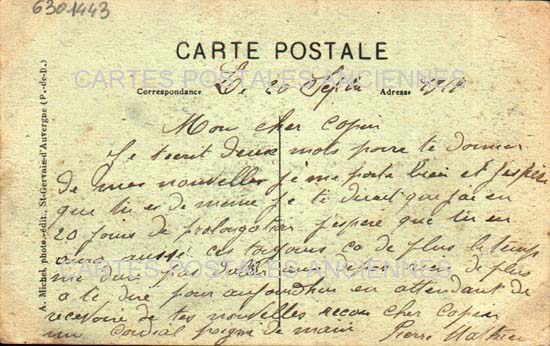 6301443
CARTE POSTALE
CARTES POSTALES ANCIENNES
Correspondance Le 20 Adresse
A. Michel, photo.-édit., St-Germain-d'Auvergne (P.-de-D.)
Mon cher Copin
Je tecrit deux mots pour te donner
de mes nouvelles je me porte bien et j'espère
que tu es de même je te dirait que j'ai eu
20 jours de prolongation j'espère que tu en
aura aussi ces toujours ça de plus le temps
me dure pas rien de plus
a te dire pour aujourd'hui en attendant de
recevoir de tes nouvelles recois cher Copin
un cordial poigné de main Pierre Mathieu
CARTES POSTALES ANCIENNES